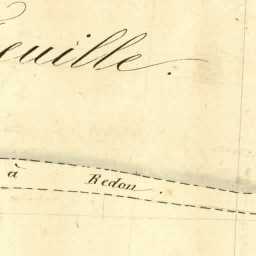 euille.
à Redon.